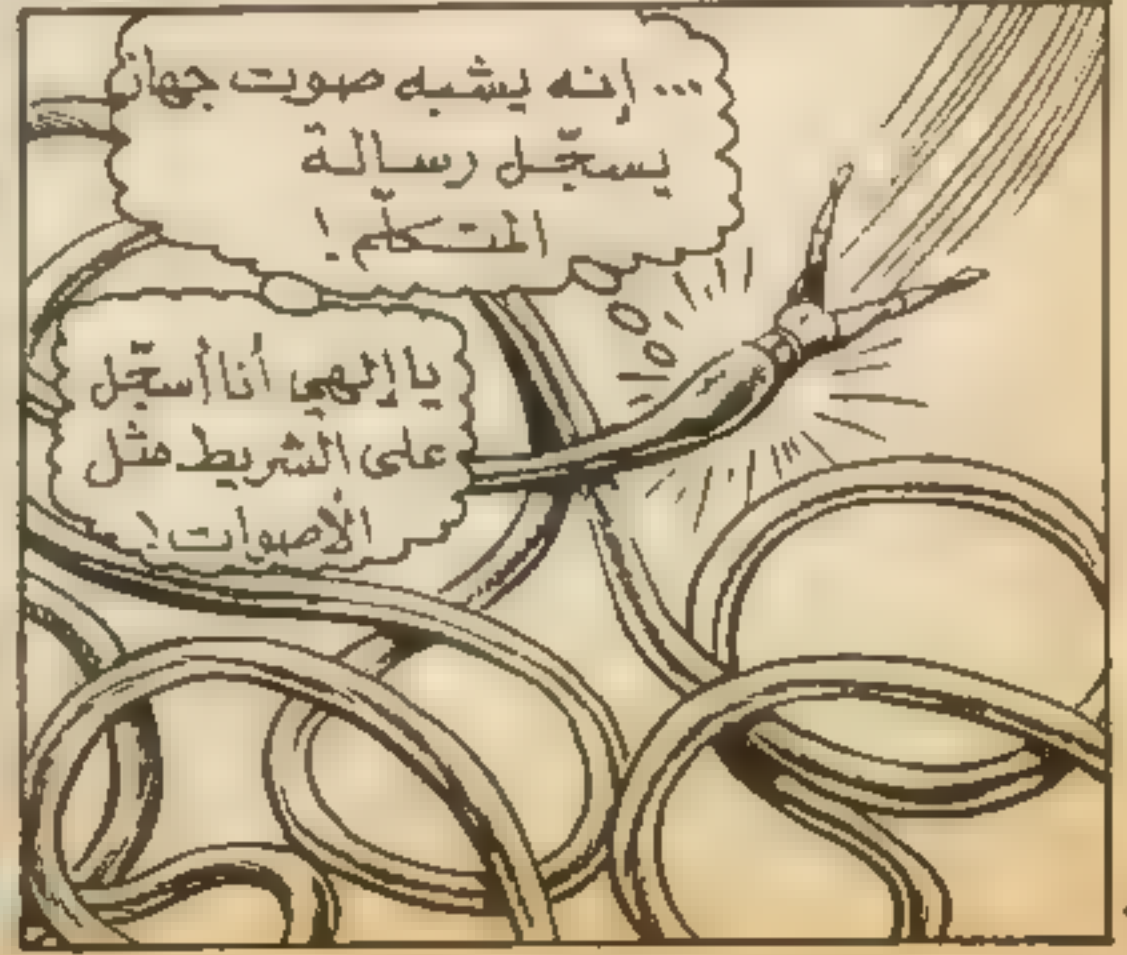 ... إنه يشبه صوت جهاز
يسجّل رسالة
المتكلّم !
يا إلهي أنا أسجّل
على الشريط مثل
الأصوات !